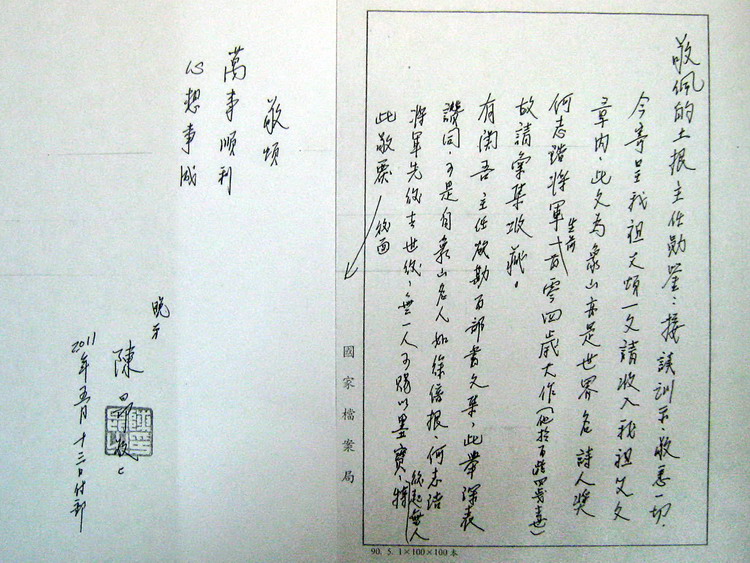 敬佩的土根主任勛鑒：接談訓示，敬悉一切，
今寄呈我祖父頌一文請收入我祖父文
章內，此文為象山亦是世界名詩人獎
何志浩將軍生前一百零四歲大作（他於百零四壽喜）
故請彙集收藏。
有關吾主任欲勘百部書文集，此舉深表
讚同，可是自象山名人如徐培根、何志浩
將軍先後去世後，無一人可賜以墨寶，特
後起無人
此敬票 後面
國家檔案局
90. 5. 1×100×100本
敬頌
萬事順利
心想事成
晚
陳
2011年五月十三日付郵